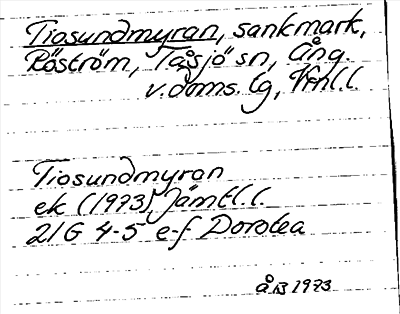 Tiosundmyran, sankmark,
Röström, Tåsjö sn, Ång.
v. doms. lg, Vrnl.l.
Tiosundmyran
ek (1973), Jämtl.l.
21G 4-5 e-f Dorotea
ÅB 1973